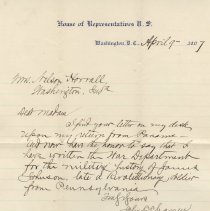 House of Representatives U. S.
Washington, D. C. April 9 1907
Mrs. Nelson Horrall
Washington, Ind
Dear Madam
I find your letter on my desk
upon my return from Panama
and now have the honor to say that I
have written the War Department
for the military history of James
Johnson, late a Revolutionary soldier
from Pennsylvania
Truly yours